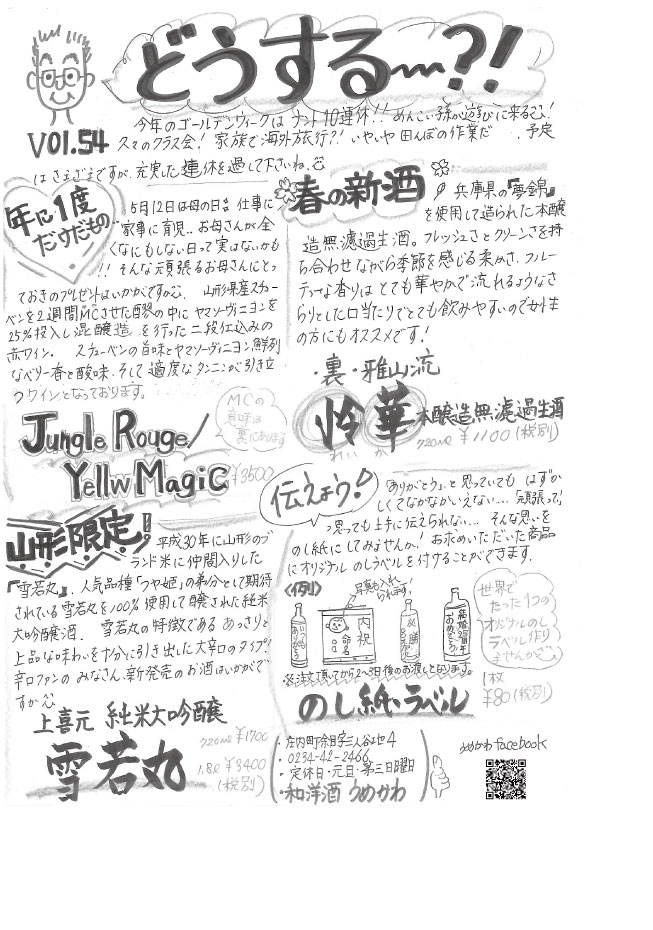 どうする〜?!
VOl.54
今年のゴールデンウィークは ナント10連休!! めんこい孫が遊びに来るぞ!
久々のクラス会! 家族で海外旅行?! いやいや 田んぼの作業だ 予定
はさまざまですが、充実した連休を過して下さいね。
年に1度
だケだもの
5月12日は母の日 仕事に
家事に育児.. お母さんが全
くなにもしない日って実はないかも
!! そんな頑張るお母さんにとっ
ておきのプレゼントはいかがですか。 山形県産スチュー
ベンを2週間MCさせた醪の中に ヤマソーヴィニヨンを
25%投入し混醸造 を行った 二段仕込みの
赤ワイン。 スチューベンの旨味とヤマソーヴィニヨン鮮烈
なベリー香と酸味、そして適度なタンニンが引き立
つワインとなっております。
Jungle Rouge/
Yellw Magic
MCの
意味は
裏にあります
¥3500
山形限定!
平成30年に山形のブ
ランド米に仲間入りした
『雪若丸』。人気品種「つや姫」の弟分として期待
されている雪若丸を100%使用して醸された純米
大吟醸酒。 雪若丸の特徴である あっさりと
上品な味わいを十分に引き出した大辛口のタイプ!
辛口ファンの みなさん、新発売のお酒はいかがで
すか
上喜元 純米大吟醸
雪若丸
720ml ¥1700
1.8l ¥3400
(税別)
春の新酒
兵庫県の『夢錦』
を使用して造られた本醸
造無濾過生酒。フレッシュさとクリーンさを持
ち合わせながら季節を感じる柔かさ、フルー
ティーな香りは とても華やかで流れるようなさ
らりとした口当たりでとても飲みやすいので女性
の方にもオススメです!
・裏・雅山流
怜華 本醸造無濾過生酒
れい か
720ml ¥1100(税別)
伝えよう!
「ありがとう」と思っていても はずか
しくてなかなかいえない… 「頑張って」
っ思っても上手に伝えられない… そんな思いを
のし紙にしてみませんか! お求めいただいた商品
にオリジナル のしラベルを付けることができます。
〈例〉
写真も入れ
られます!
いつも
ありがとう
内祝
命名
必勝
結婚25周年
おめでとう
世界で
たった1つの
オリジナルのし
ラベル作り
ませんか
※注文頂いてから2〜3日後のお渡しとなります。
のし紙・ラベル
1枚
¥80(税別)
・庄内町余目字三人谷地4
・0234-42-2466
・定休日・元旦・第三日曜日
・和洋酒 うめかわ
うめかわ facebook